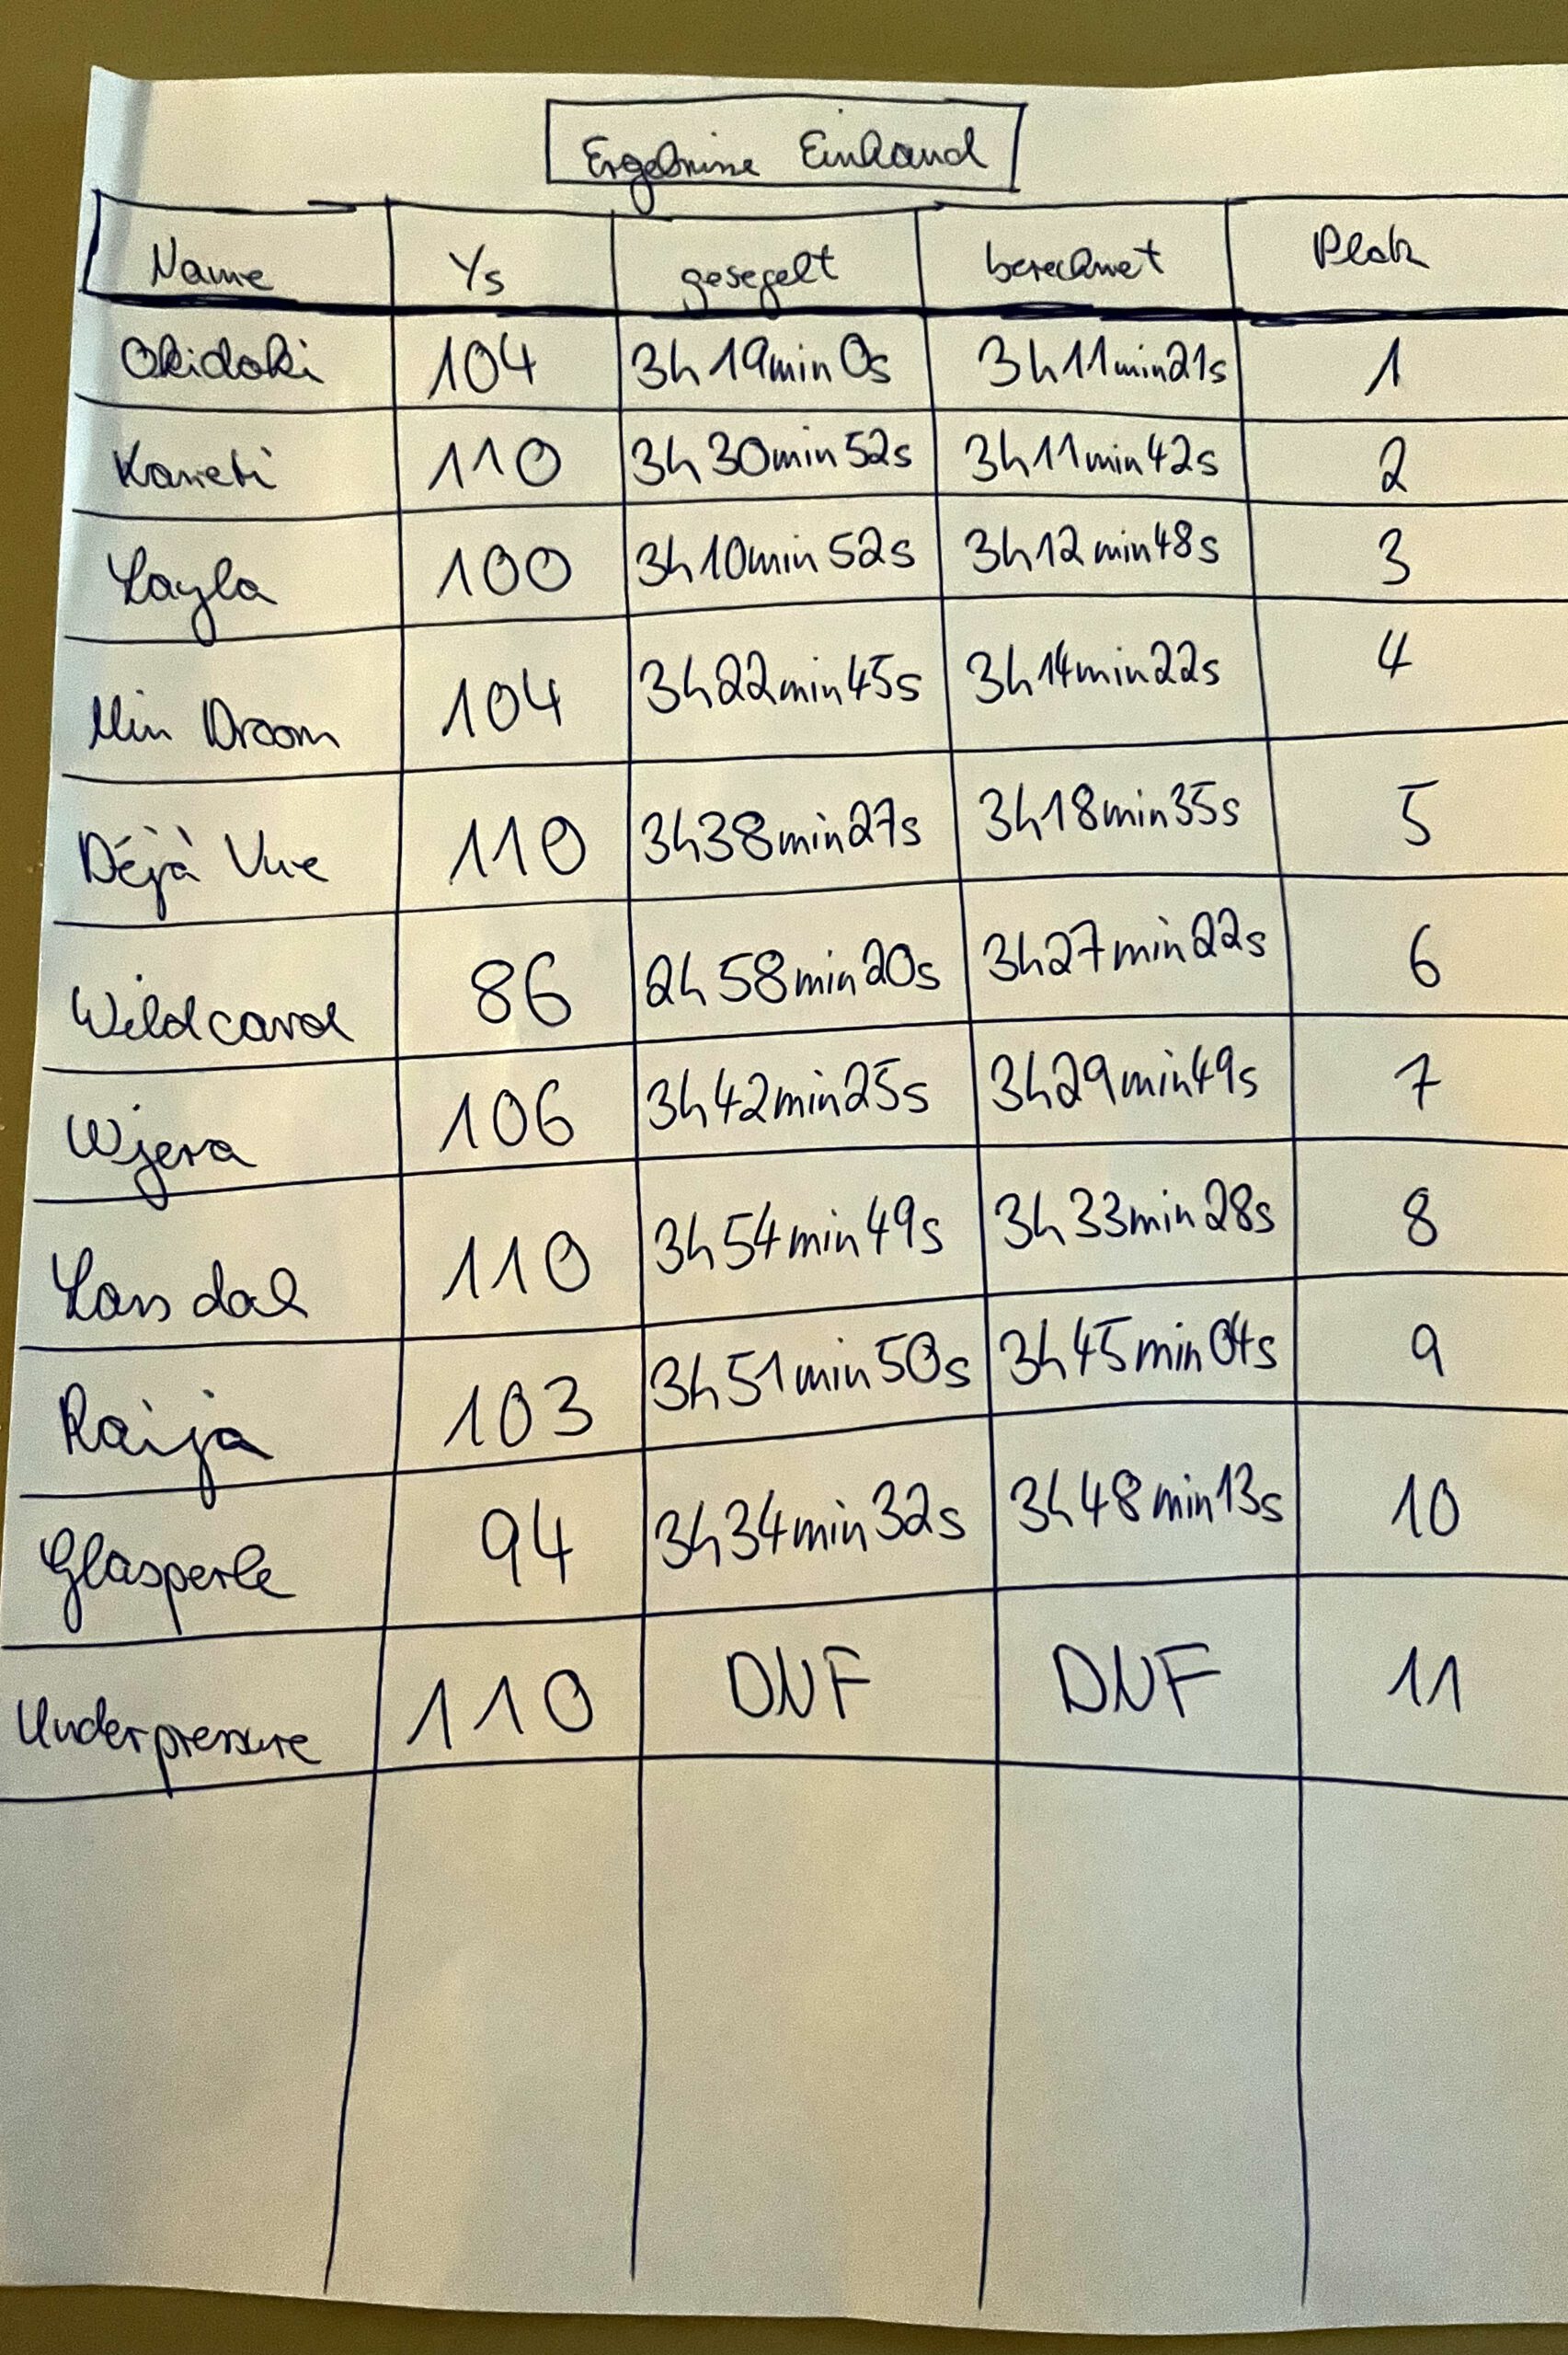 Ergebnisse Einhand
Name Ys gesegelt berechnet Platz
Okidoki 104 3h 19min 0s 3h 11min 21s 1
110 3h 30min 52s 3h 11min 42s 2
Layla 100 3h 10min 52s 3h 12min 48s 3
Min Droom 104 3h 22min 45s 3h 14min 22s 4
Déjà Vue 110 3h 38min 27s 3h 18min 35s 5
Wildcard 86 2h 58min 20s 3h 27min 22s 6
Wjera 106 3h 42min 25s 3h 29min 49s 7
110 3h 54min 49s 3h 33min 28s 8
Raija 103 3h 51min 50s 3h 45min 04s 9
Glasperle 94 3h 34min 32s 3h 48min 13s 10
Underpressure 110 DNF DNF 11